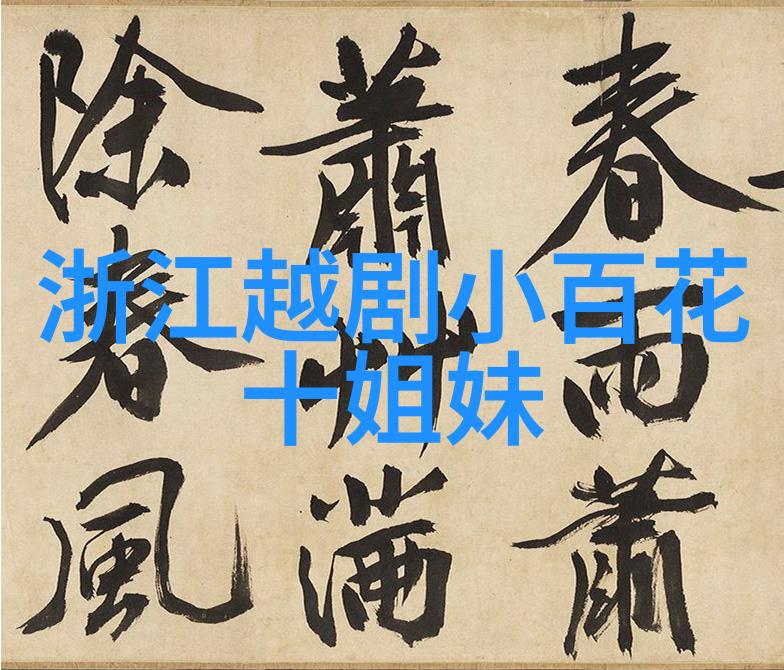 浙江越剧小百花
十姐妹
春雨蕭
蕭艸滿
除春風